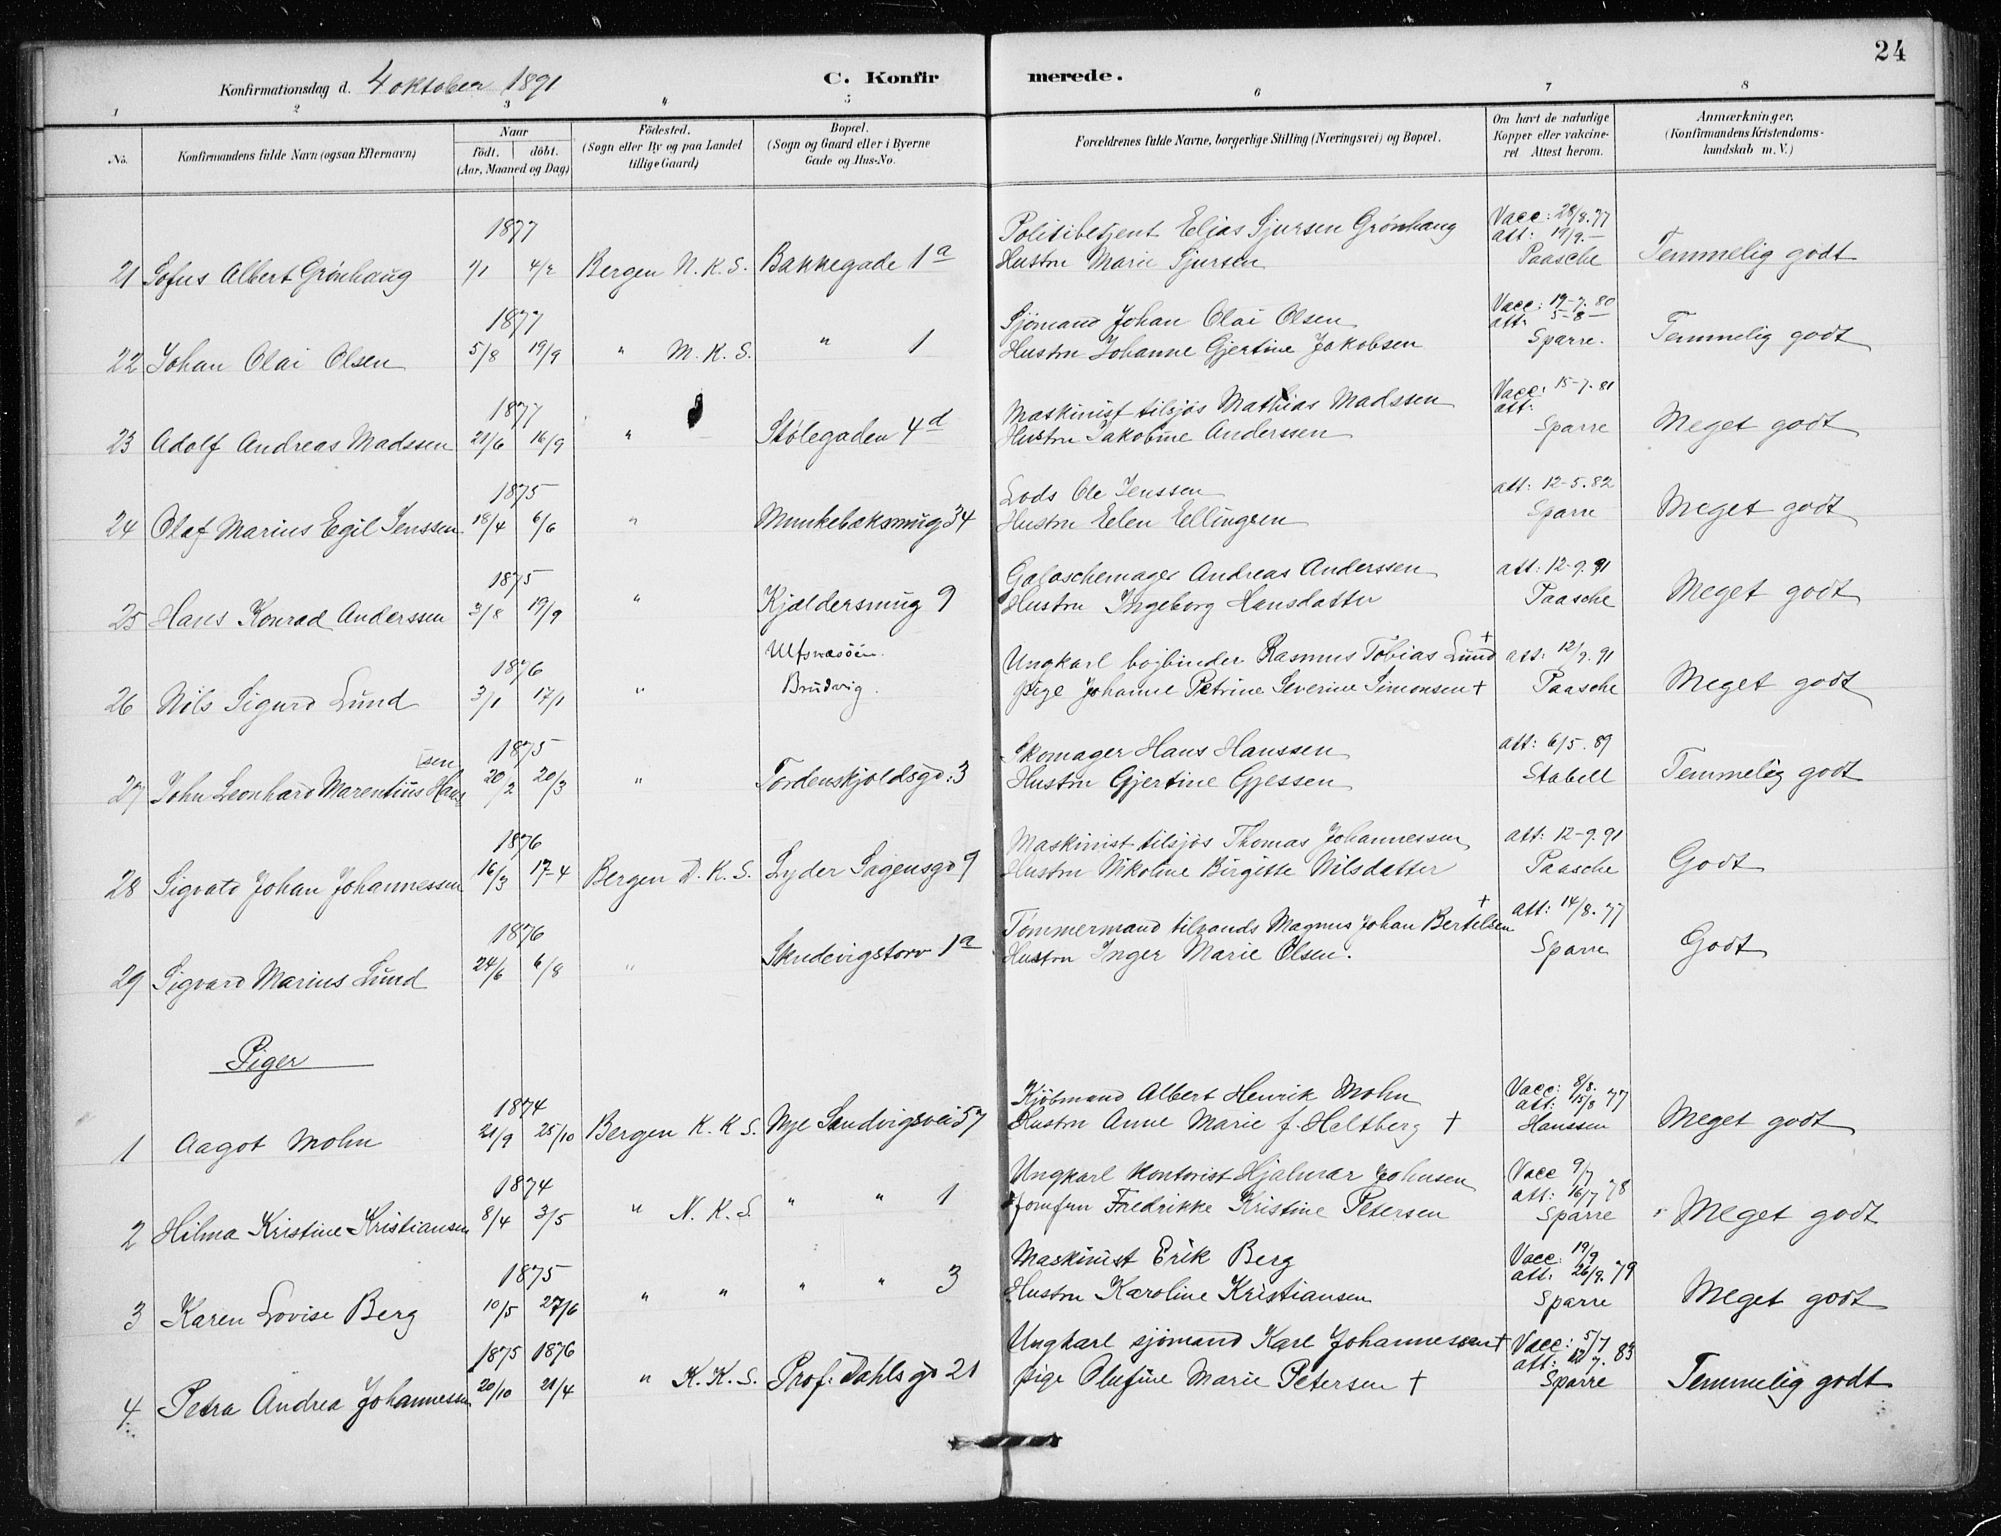 24
Konfirmationsdag d. 4 oktober 1891 C. Konfir merede.
1 2 3 4 5 6 7 8
No. Konfirmandens fulde Navn (ogsaa Efternavn) Naar født. døbt. (Aar, Maaned og Dag) Fødested. (Sogn eller By og paa Landet tillige Gaard) Bopæl. (Sogn og Gaard eller i Byerne Gade og Hus-No. Forældrenes fulde Navne, borgerlige Stilling (Næringsvei) og Bopæl. Om havt de naturlige Kopper eller vakcineret Attest herom. Anmærkninger. (Konfirmandens Kristendomskundskab m. V.)
1877 Politibetjent Elias Sjursen Grønhaug Vacc: 28/8.77 att: 19/9.—
21 Sofus Albert Grønhaug 1/1 4/2 Bergen N. K. S. Bakkegade 1a Hustru Marie Sjursen Paasche Temmelig godt
1877 Sjømand Johan Olai Olsen Vacc: 17-7.80 att: 5-8—
22 Johan Olai Olsen 5/8 19/9 " M. K. S. " 1 Hustru Johanne Gjertine Jakobsen Sparre. Temmelig godt
1877 Maskinist tilsjøs Mathias Madssen Vacc: 15-7.81 att:
23 Adolf Andreas Madssen 21/6 16/9 " Stølegaden 4d Hustru Jakobine Anderssen Sparre Meget godt
1875 Lods Ole Jenssen att: 12-5.82
24 Olaf Marius Egil Jenssen 18/4 6/6 " Munkebæksmug 34 Hustru Elen Ellingsen Sparre Meget godt
1875 Galoschemager Andreas Anderssen att: 12-9.91
25 Hans Konrad Anderssen 3/8 19/9 " Kjældersmug 9 Hustru Ingeborg Hansdatter Paasche Meget godt
1876 Ulfsnesøen. Ungkarl bogbinder Rasmus Tobias Lund + att: 12/9.91
26 Nils Sigurd Lund 3/1 17/1 " Brudvig. pige Johanne Petrine Severine Simonsen + Paasche Meget godt
1875 Skomager Hans Hanssen att: 6/5.89
27 John Leonhard Marentius Hanssen 20/2 20/3 " Tordenskjoldsgd: 3 Hustru Gjertine Gjessen Stabell Temmelig godt
1876 Maskinist tilsjøs Thomas Johannessen att: 12-9.91
28 Sigvald Johan Johannessen 16/3 17-4 Bergen D. K. S. Lyder Sagensgd 9 Hustru Nikoline Birgitte Nilsdatter Paasche Godt
1876 Tømmermand tillands Magnus Johan Bertelsen + att: 14/8.77
29 Sigvard Marius Lund 24/6 6/8 " Skudevigstorv 1a Hustru Inger Marie Olsen. Sparre Godt
Piger
1874 Kjøbmand Albert Henrik Mohn Vacc: 8/8. att: 15/8 77
1 Aagot Mohn 21/9 25/10 Bergen K. K. S. Nye Sandvigsvei 57 Hustru Anne Marie f. Heltberg + Hanssen Meget godt
1874 Ungkarl kontorist Hjalmar Johnsen Vacc 9/7 att: 16/7 78
2 Hilma Kristine Kristiansen 8/4 3/5 " N. K. S. " " 1 Jomfru Fredrikke Kristine Petersen Sparre Meget godt
1875 Maskinist Erik Berg Vacc: 19/9 att: 26/9.79
3 Karen Lovise Berg 10/5 27/6 " " " " 3 Hustru Karoline Kristiansen Sparre Meget godt
1875 1876 Ungkarl sjømand Karl Johannessen + Vacc: 5/7 att: 12/7.83
4 Petra Andrea Johannessen 20/10 21/4 " K. K. S. Prof: Dahls gd 21 pige Olufine Marie Petersen + Sparre Temmelig godt